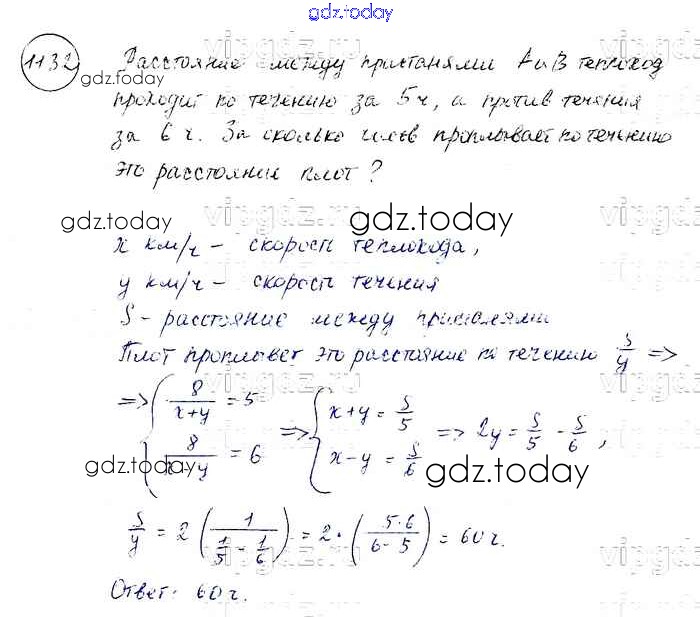 gdz.today
1132 Расстояние между пристанями А и В теплоход
gdz.today
проходит по течению за 5 ч, а против течения
за 6 ч. За сколько часов проплывает по течению
это расстояние плот?
gdz.today gdz.today
x км/ч – скорость теплохода,
y км/ч – скорость течения
S – расстояние между пристанями
Плот проплывет это расстояние по течению S/y =>
=> { 8/(x+y) = 5 => { x+y = S/5 => 2y = S/5 - S/6,
{ 8/(x-y) = 6 { x-y = S/6
gdz.today gdz.today
S/y = 2 (1/(1/5 - 1/6)) = 2 · (5·6/(6-5)) = 60 ч.
Ответ: 60 ч.